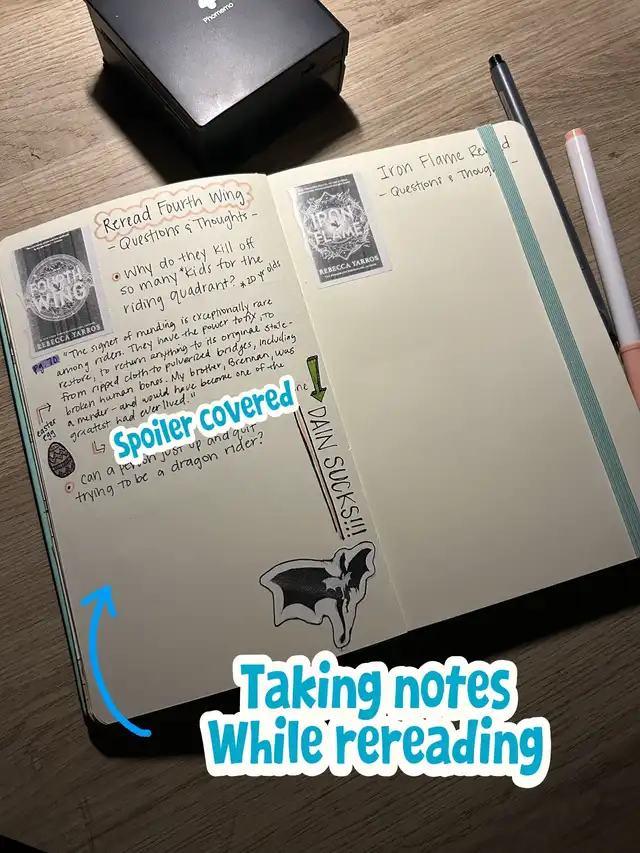 Phomemo
Reread Fourth Wing
- Questions & Thoughts -
FOURTH
WING
REBECCA YARROS
Why do they kill off
so many *kids for the
riding quadrant? *20 yr olds
Pg. 70
"The signet of mending is exceptionally rare
among riders. They have the power to fix, to
restore, to return anything to its original state-
from ripped cloth to pulverized bridges, including
broken human bones. My brother, Brennan, was
a mender- and would have become one of the
greatest had ever lived."
easter
egg
Spoiler covered
Can a person just up and quit
trying to be a dragon rider?
DAIN SUCKS!!!
Iron Flame
- Questions & Thoughts -
IRON
FLAME
REBECCA YARROS
Taking notes
While rereading